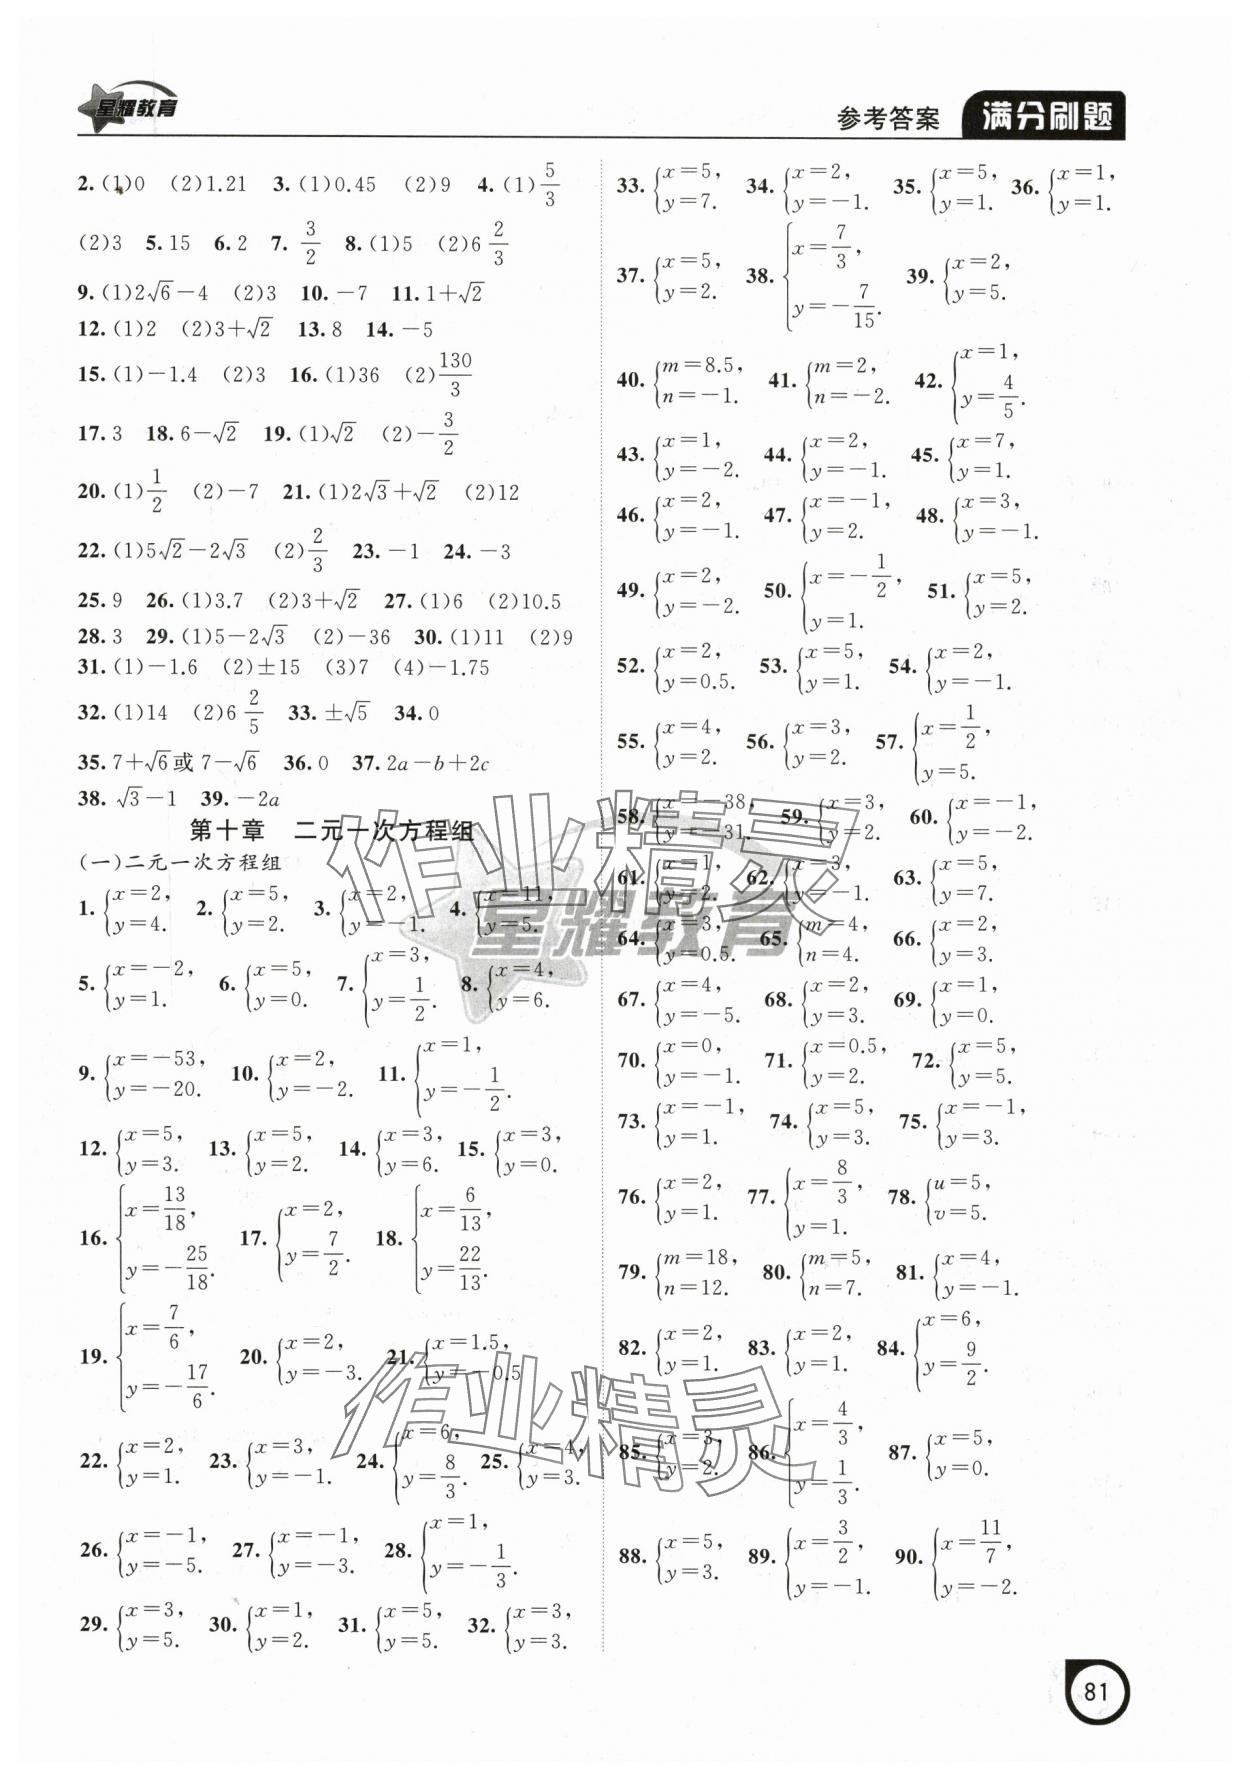 星耀教育
参考答案 满分刷题
2.(1)0 (2)1.21 3.(1)0.45 (2)9 4.(1)5/3
(2)3 5.15 6.2 7.3/2 8.(1)5 (2)6 2/3
9.(1)2√6－4 (2)3 10.－7 11.1＋√2
12.(1)2 (2)3＋√2 13.8 14.－5
15.(1)－1.4 (2)3 16.(1)36 (2)130/3
17.3 18.6－√2 19.(1)√2 (2)－3/2
20.(1)1/2 (2)－7 21.(1)2√3＋√2 (2)12
22.(1)5√2－2√3 (2)2/3 23.－1 24.－3
25.9 26.(1)3.7 (2)3＋√2 27.(1)6 (2)10.5
28.3 29.(1)5－2√3 (2)－36 30.(1)11 (2)9
31.(1)－1.6 (2)±15 (3)7 (4)－1.75
32.(1)14 (2)6 2/5 33.±√5 34.0
35.7＋√6或7－√6 36.0 37.2a－b＋2c
38.√3－1 39.－2a
第十章 二元一次方程组
(一)二元一次方程组
1.{x＝2, y＝4. 2.{x＝5, y＝2. 3.{x＝2, y＝－1. 4.{x＝11, y＝5.
5.{x＝－2, y＝1. 6.{x＝5, y＝0. 7.{x＝3, y＝1/2. 8.{x＝4, y＝6.
9.{x＝－53, y＝－20. 10.{x＝2, y＝－2. 11.{x＝1, y＝－1/2.
12.{x＝5, y＝3. 13.{x＝5, y＝2. 14.{x＝3, y＝6. 15.{x＝3, y＝0.
16.{x＝13/18, y＝－25/18. 17.{x＝2, y＝7/2. 18.{x＝6/13, y＝22/13.
19.{x＝7/6, y＝－17/6. 20.{x＝2, y＝－3. 21.{x＝1.5, y＝－0.5
22.{x＝2, y＝1. 23.{x＝3, y＝－1. 24.{x＝6, y＝8/3. 25.{x＝4, y＝3.
26.{x＝－1, y＝－5. 27.{x＝－1, y＝－3. 28.{x＝1, y＝－1/3.
29.{x＝3, y＝5. 30.{x＝1, y＝2. 31.{x＝5, y＝5. 32.{x＝3, y＝3.
33.{x＝5, y＝7. 34.{x＝2, y＝－1. 35.{x＝5, y＝1. 36.{x＝1, y＝1.
37.{x＝5, y＝2. 38.{x＝7/3, y＝－7/15. 39.{x＝2, y＝5.
40.{m＝8.5, n＝－1. 41.{m＝2, n＝－2. 42.{x＝1, y＝4/5.
43.{x＝1, y＝－2. 44.{x＝2, y＝－1. 45.{x＝7, y＝1.
46.{x＝2, y＝－1. 47.{x＝－1, y＝2. 48.{x＝3, y＝－1.
49.{x＝2, y＝－2. 50.{x＝－1/2, y＝1. 51.{x＝5, y＝2.
52.{x＝2, y＝0.5. 53.{x＝5, y＝1. 54.{x＝2, y＝－1.
55.{x＝4, y＝2. 56.{x＝3, y＝2. 57.{x＝1/2, y＝5.
58.{x＝－38, y＝－31. 59.{x＝3, y＝2. 60.{x＝－1, y＝－2.
61.{x＝1, y＝2. 62.{x＝3, y＝－1. 63.{x＝5, y＝7.
64.{x＝3, y＝0.5. 65.{m＝4, n＝4. 66.{x＝2, y＝3.
67.{x＝4, y＝－5. 68.{x＝2, y＝3. 69.{x＝1, y＝0.
70.{x＝0, y＝－1. 71.{x＝0.5, y＝2. 72.{x＝5, y＝5.
73.{x＝－1, y＝1. 74.{x＝5, y＝3. 75.{x＝－1, y＝3.
76.{x＝2, y＝1. 77.{x＝8/3, y＝1. 78.{u＝5, v＝5.
79.{m＝18, n＝12. 80.{m＝5, n＝7. 81.{x＝4, y＝－1.
82.{x＝2, y＝1. 83.{x＝2, y＝1. 84.{x＝6, y＝9/2.
85.{x＝3, y＝2. 86.{x＝4/3, y＝1/3. 87.{x＝5, y＝0.
88.{x＝5, y＝3. 89.{x＝3/2, y＝－1. 90.{x＝11/7, y＝－2.
作业精灵
星耀教育
作业精灵
81